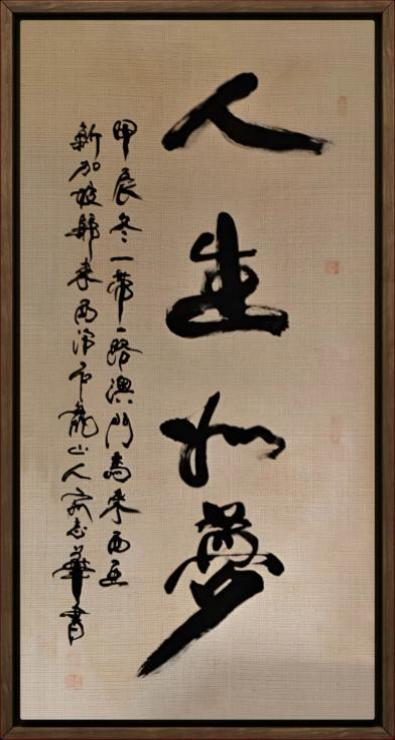 人生如夢
甲辰冬一帶一路澳門馬來西亞
新加坡歸來西沛市龍山人家志華書